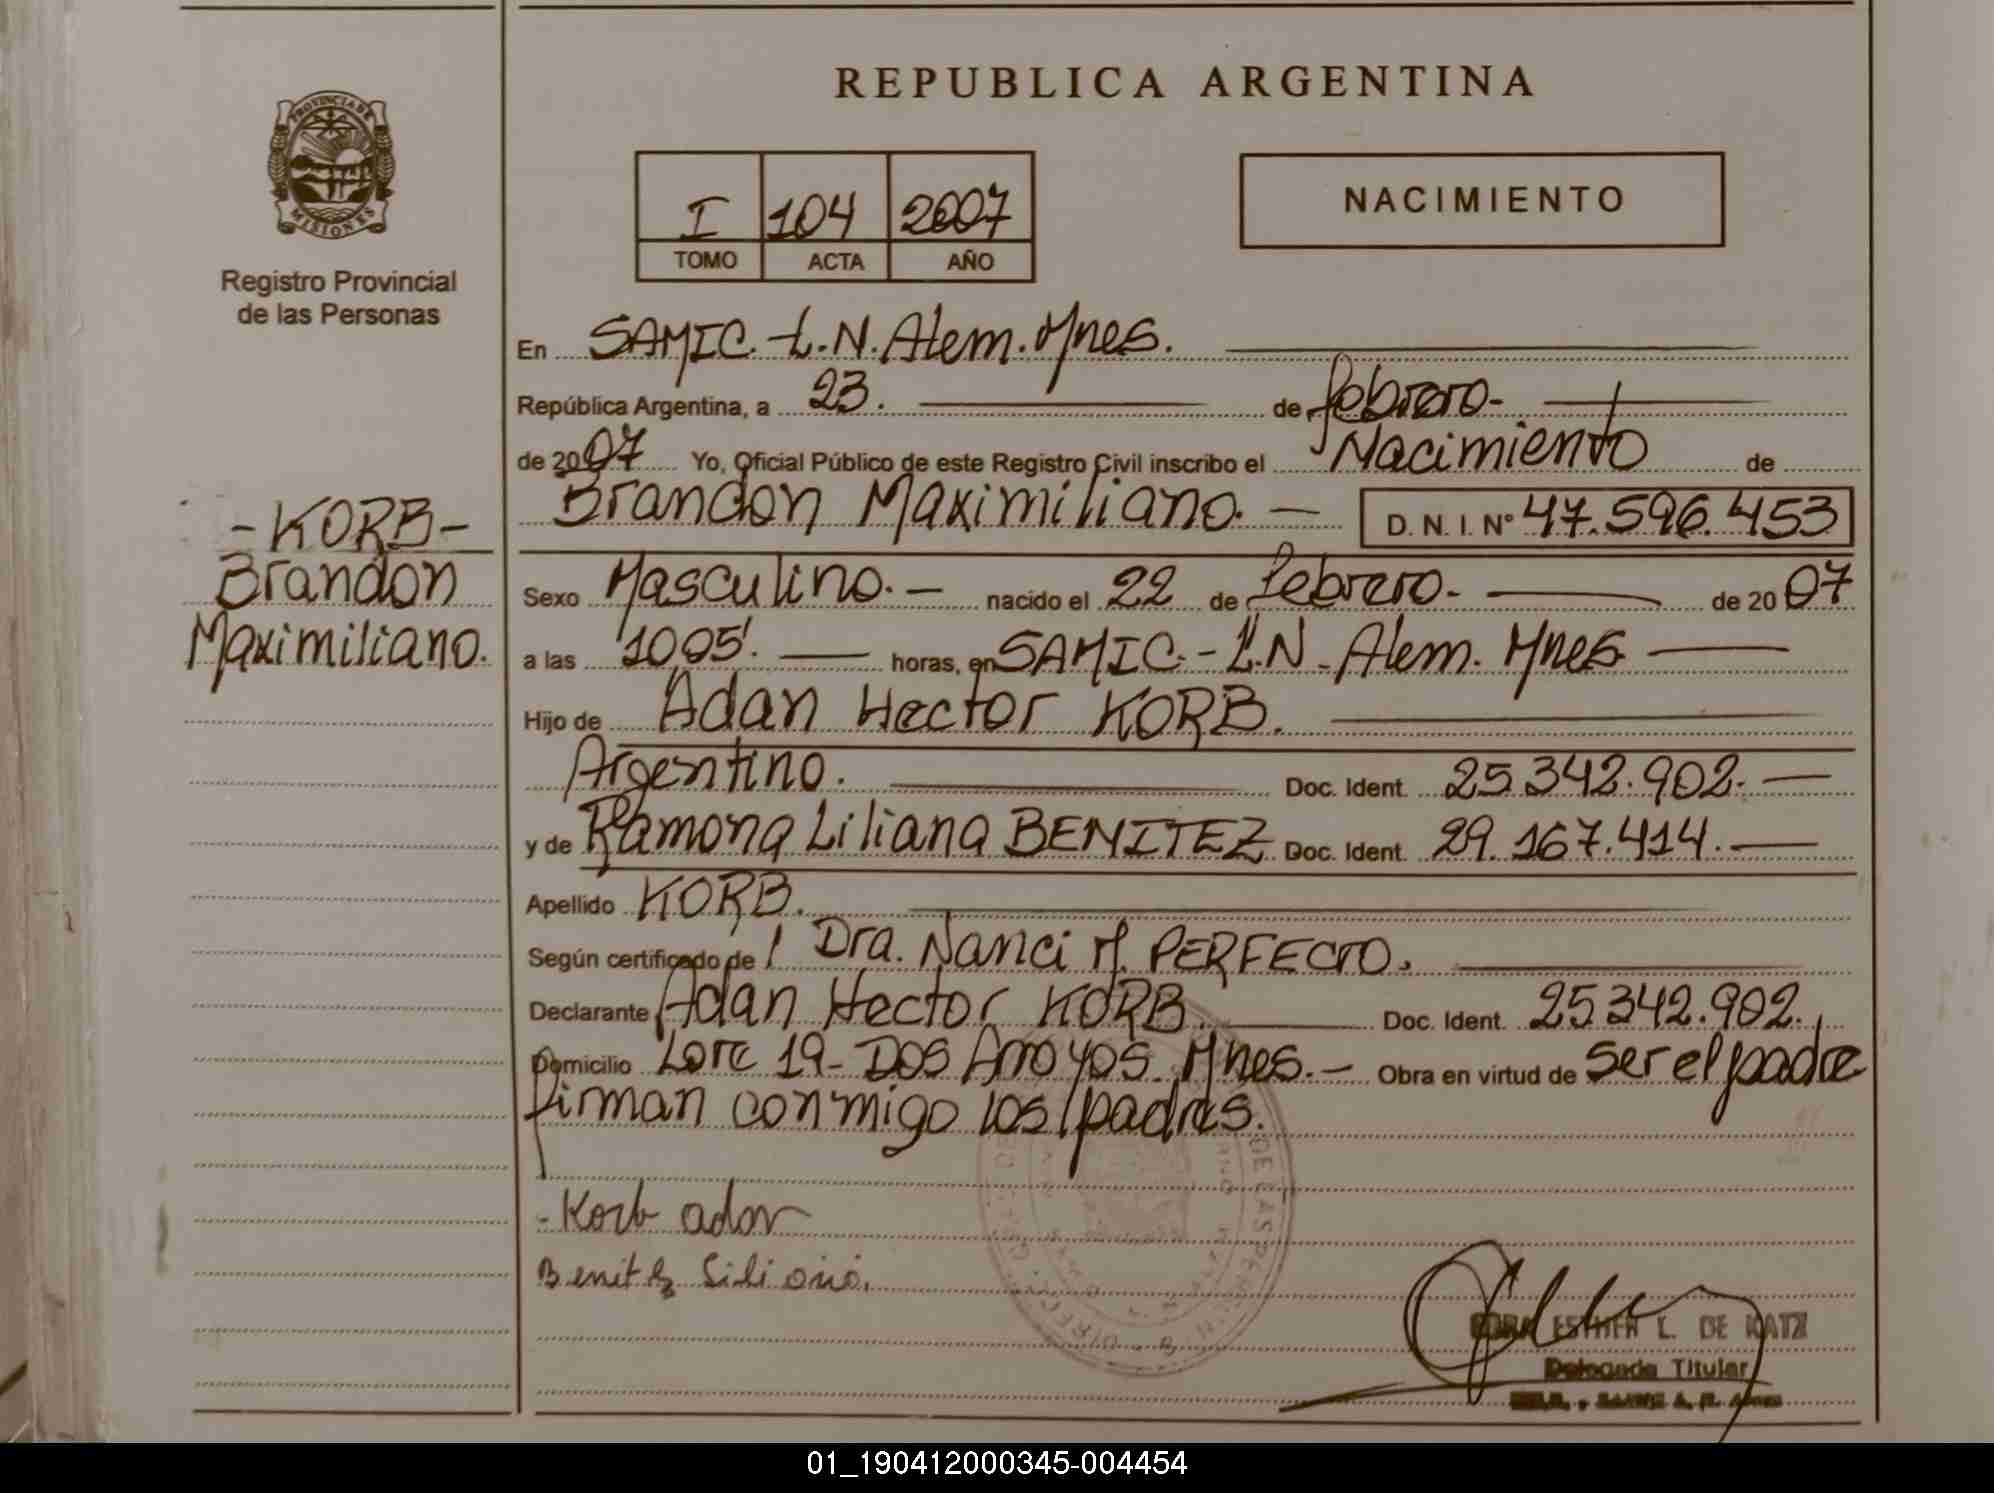 REPUBLICA ARGENTINA
PROVINCIA DE
MISIONES
Registro Provincial
de las Personas
I 104 2007
TOMO ACTA AÑO
NACIMIENTO
En SAMIC.-L.N.Alem.Mnes.
República Argentina, a 23. de febrero-
de 2007 Yo, Oficial Público de este Registro Civil inscribo el Nacimiento de
Brandon Maximiliano.- D. N. I. N° 47.596.453
-KORB-
Brandon
Maximiliano.
Sexo Masculino.- nacido el 22 de febrero.- de 2007
a las 10,05'. horas, en SAMIC.-L.N-Alem. Mnes-
Hijo de Adan Hector KORB.
Argentino. Doc. Ident. 25.342.902.-
y de Ramona Liliana BENITEZ Doc. Ident. 29.167.414.-
Apellido KORB.
Según certificado de l Dra. Nanci M. PERFECTO.
Declarante Adan Hector KORB Doc. Ident. 25.342.902.
Domicilio Lote 19-DOS Arroyos. Mnes.- Obra en virtud de ser el padre
firman conmigo los padres.
-Korb adan
Benitez Liliana.
ESTHER L. DE KATZ
Delegada Titular
01_190412000345-004454